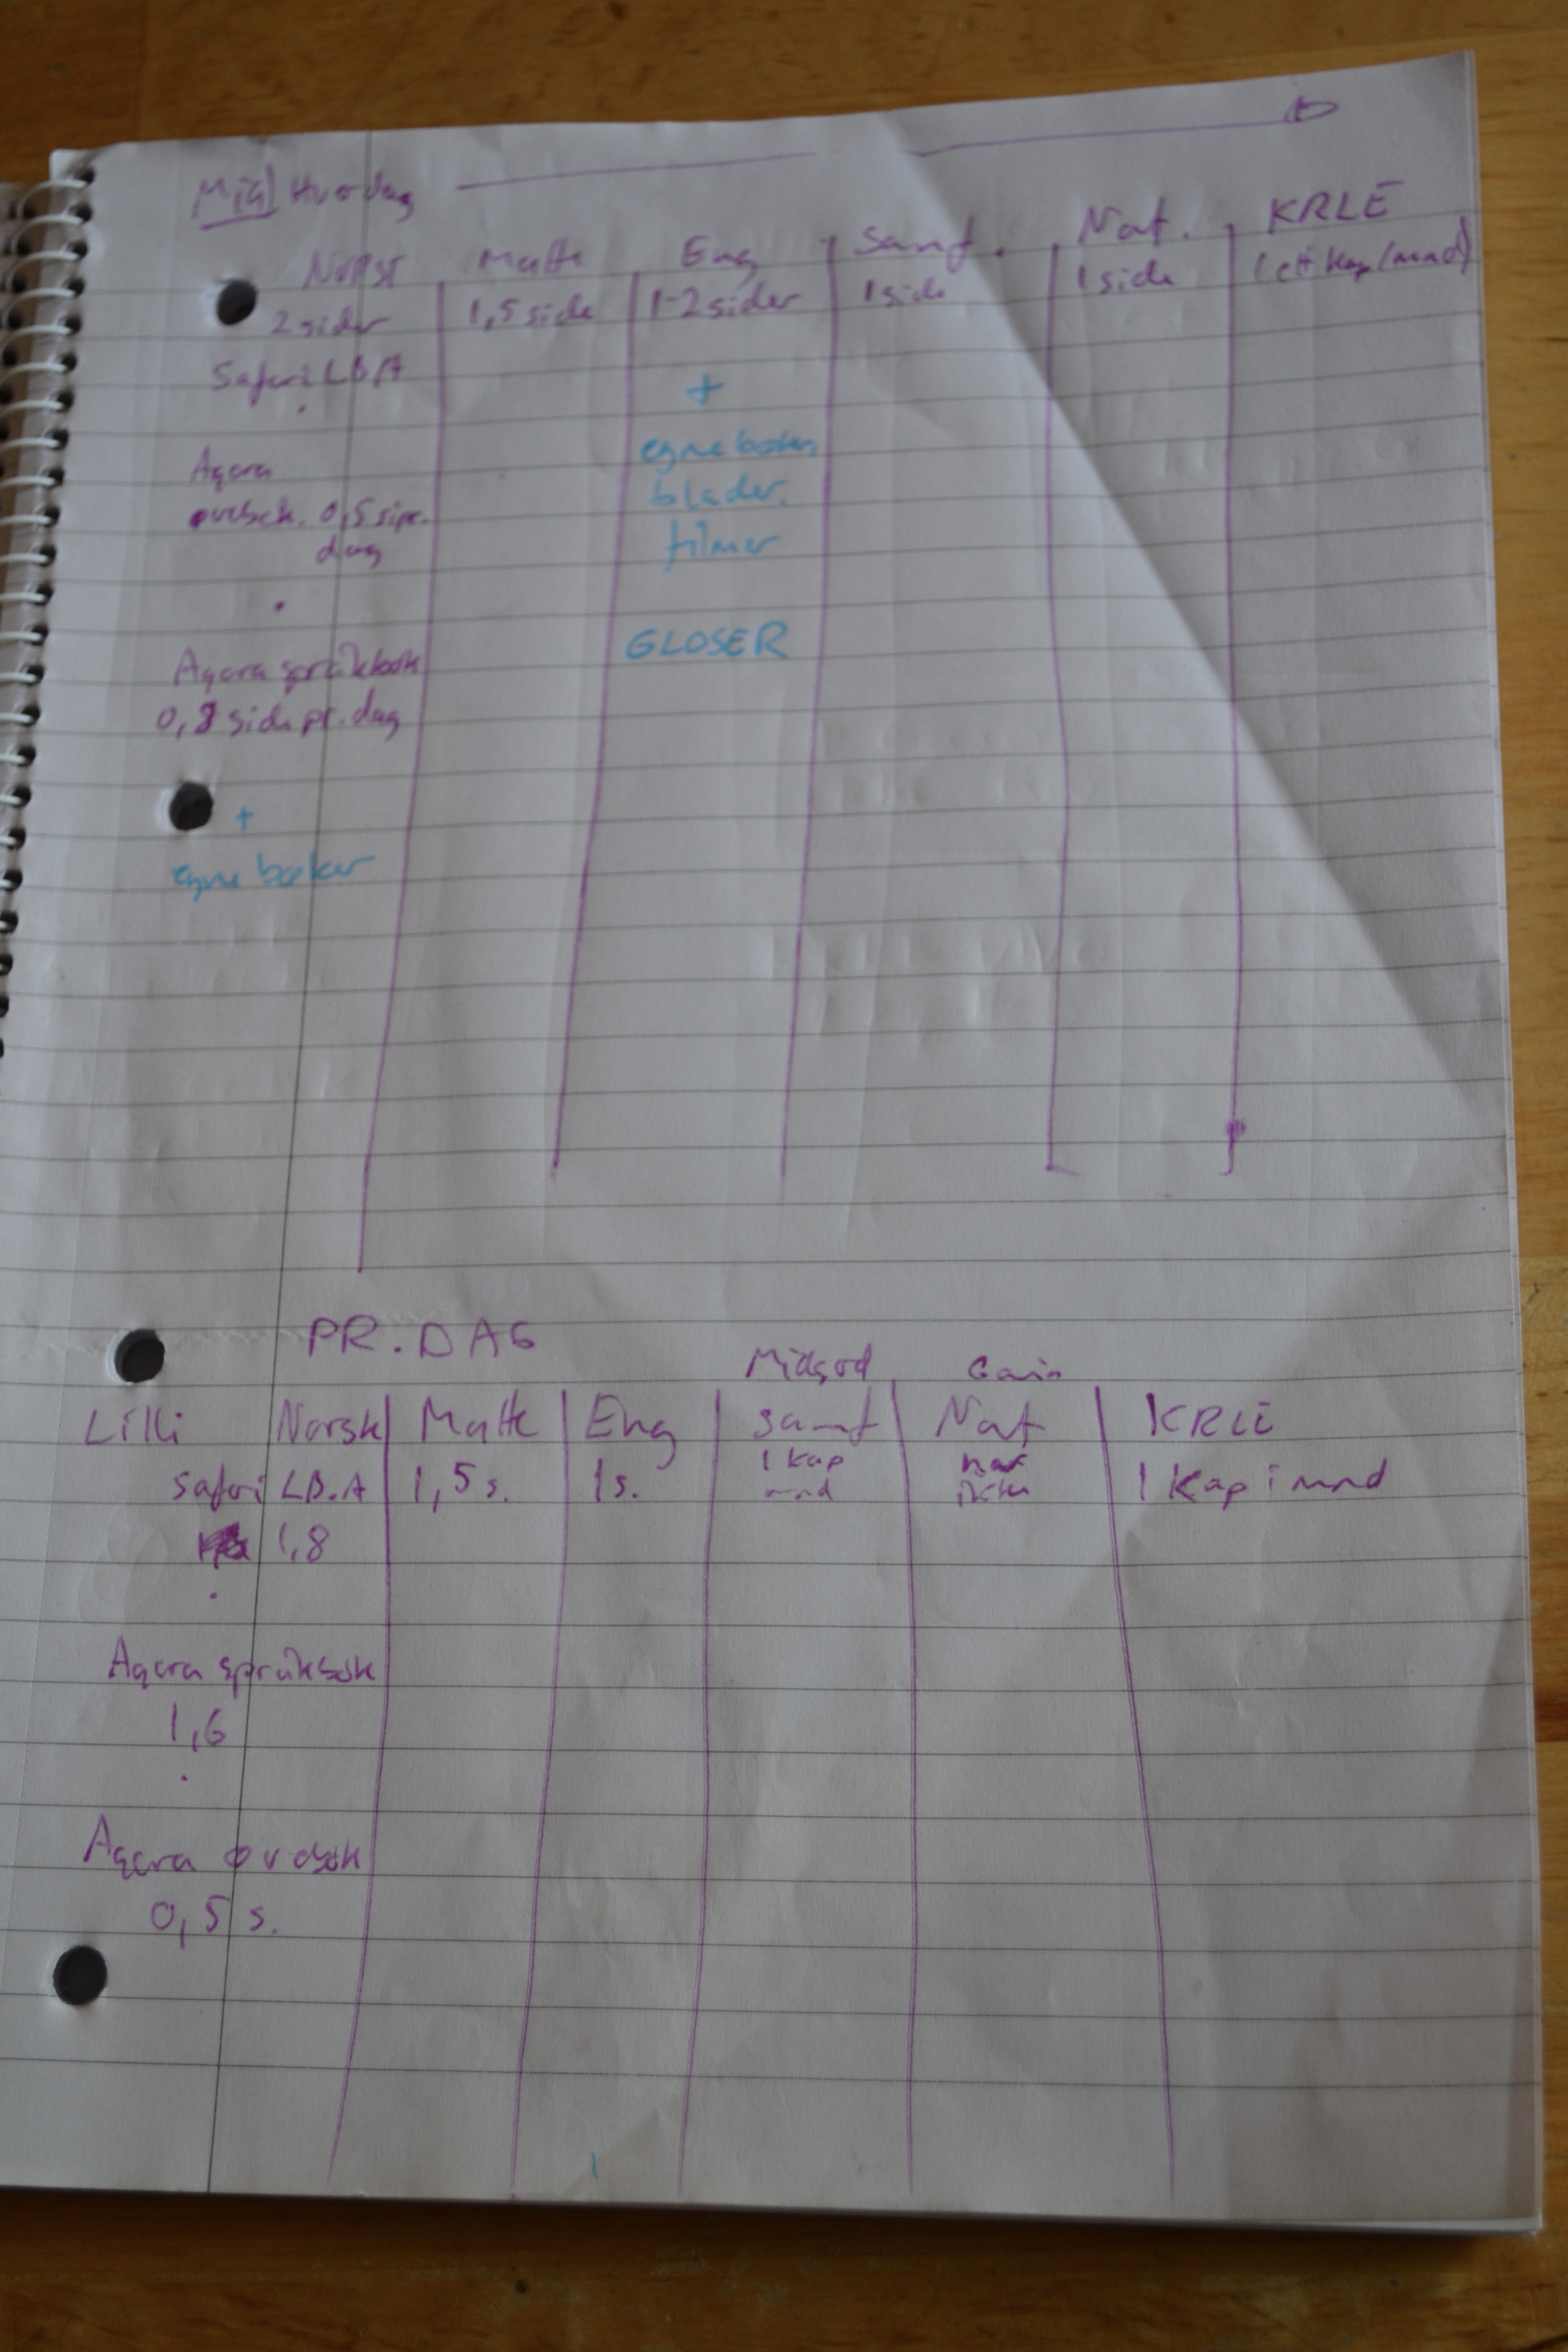 Mia Hverdag
Norsk Matte Eng Samf. Nat. KRLE
2 sider 1,5 side 1-2 sider 1 side 1 side 1 ett kap/mnd)
Safari LB.A
+
Agora egne bøker
øvebok. 0,5 si pr. blader.
dag filmer
Agora språkbok GLOSER
0,8 side pr. dag
+
egne bøker
PR. DAG
Midgard Gaia
Lilli Norsk Matte Eng Samf Nat KRLE
Safari LB.A 1,5 s. 1 s. 1 kap mnd 1 Kap i mnd
1,8
Agora språkbok
1,6
Agora øvebok
0,5 s.